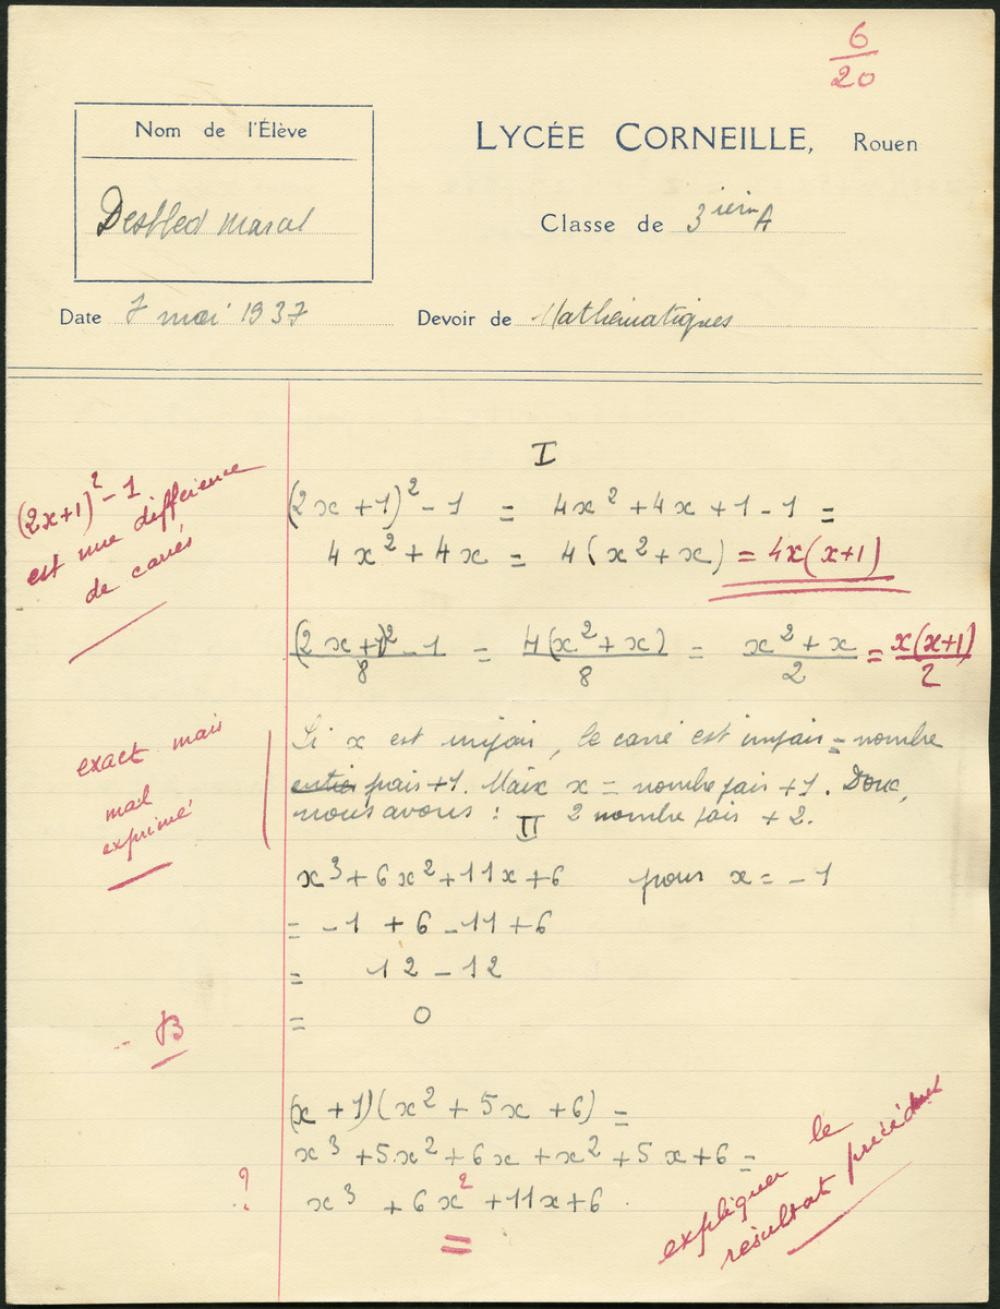 6
20
Nom de l'Élève
LYCÉE CORNEILLE, Rouen
Classe de 3ième A
Date 7 mai 1937
Devoir de Mathématiques
I
(2x+1)² - 1
est une différence
de carrés
(2x+1)² - 1 = 4x² + 4x + 1 - 1 =
4x² + 4x = 4(x² + x) = 4x(x+1)
(2x+1)² - 1 / 8 = 4(x² + x) / 8 = x² + x / 2 = x(x+1) / 2
exact mais
mal
exprimé
Si x est impair, le carré est impair = nombre
entier pair + 1. Mais x = nombre pair + 1. Donc,
nous avons : 2 nombre pairs + 2.
II
x³ + 6x² + 11x + 6 pour x = -1
= -1 + 6 - 11 + 6
= 12 - 12
= 0
B
(x + 1)(x² + 5x + 6) =
x³ + 5x² + 6x + x² + 5x + 6 =
? x³ + 6x² + 11x + 6.
expliquer le
résultat précédent